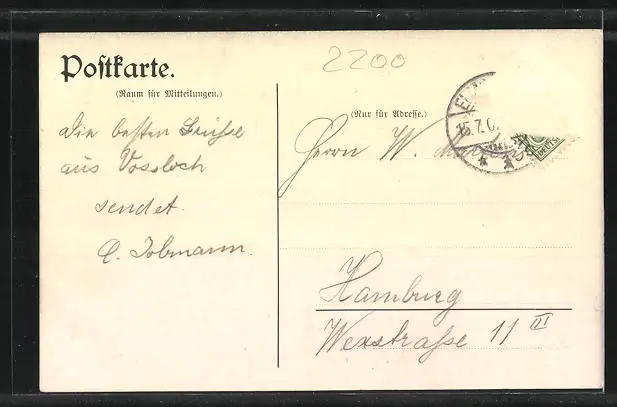 2200
Postkarte.
(Raum für Mitteilungen.)
Die besten Grüße
aus Vossloch
sendet
(Nur für Adresse.)
15.7.0
DEUTS
Herrn W.
Hamburg
Wexstraße 11 III